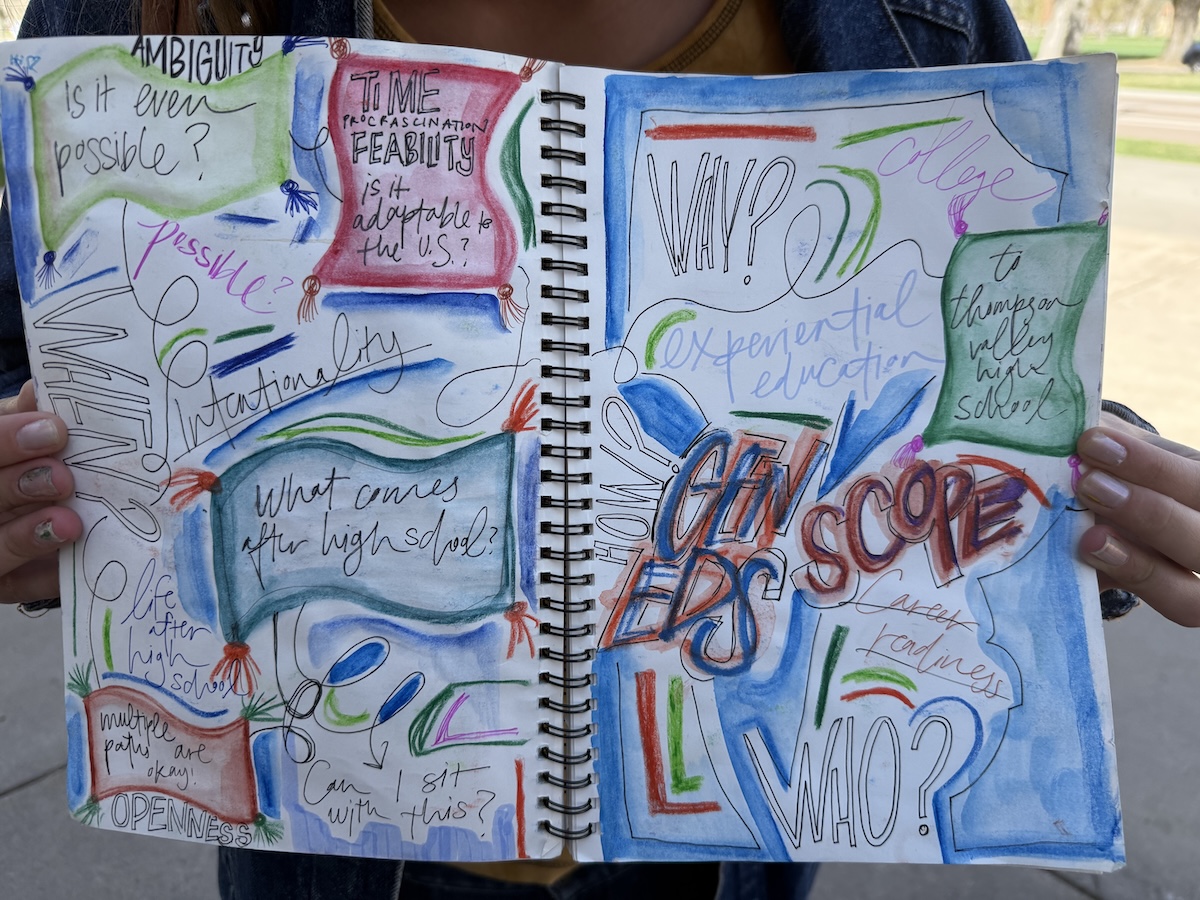 AMBIGUITY
is it even
possible?
TIME
PROCRASCINATION
FEABILITY
is it
adaptable to
the U.S.?
possible?
WHEN?
Intentionality
What comes
after high school?
life
after
high
school
multiple
paths are
okay!
OPENNESS
Can I sit
with this?
WHY?
college
to
thompson
valley
high
school
experiential
education
HOW?
GEN
EDS
SCOPE
Career
readiness
WHO?